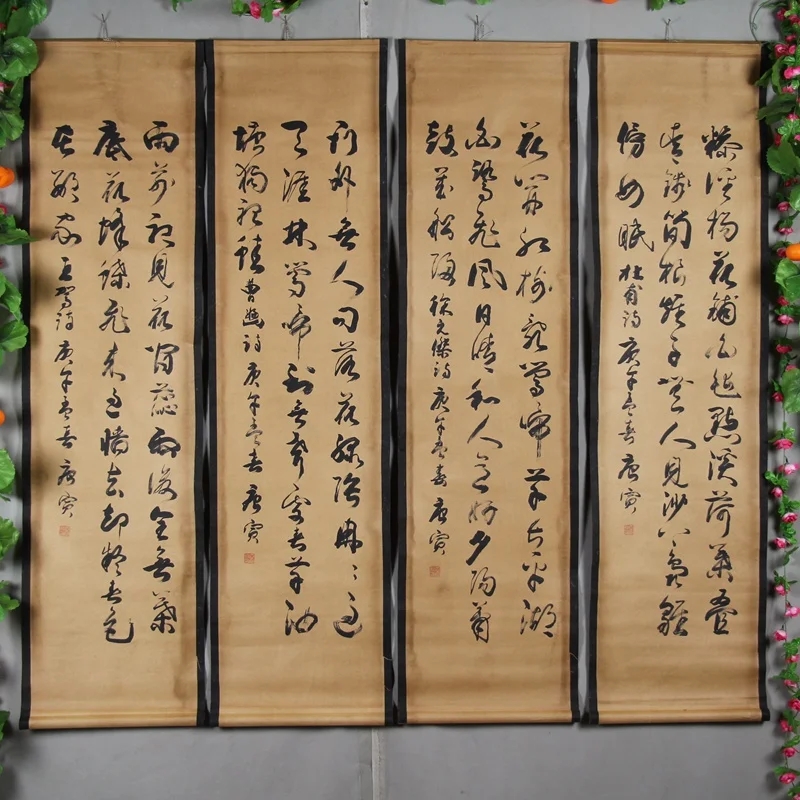 糝徑楊花鋪白氈點溪荷葉疊
青錢筍根稚子無人見沙上鳧雛
傍母眠 杜甫詩 庚午孟春 唐寅
花開紅樹亂鶯啼草長平湖
白鷺飛風日晴和人意好夕陽簫
鼓幾船歸 徐元傑詩 庚午孟春 唐寅
門外無人問落花綠陰冉冉遍
天涯林鶯啼到無聲處青草池
塘獨聽蛙 曹豳詩 庚午孟春 唐寅
雨前初見花間蕊雨後全無葉
底花蜂蝶飛來過牆去卻疑春色
在鄰家 王駕詩 庚午孟春 唐寅